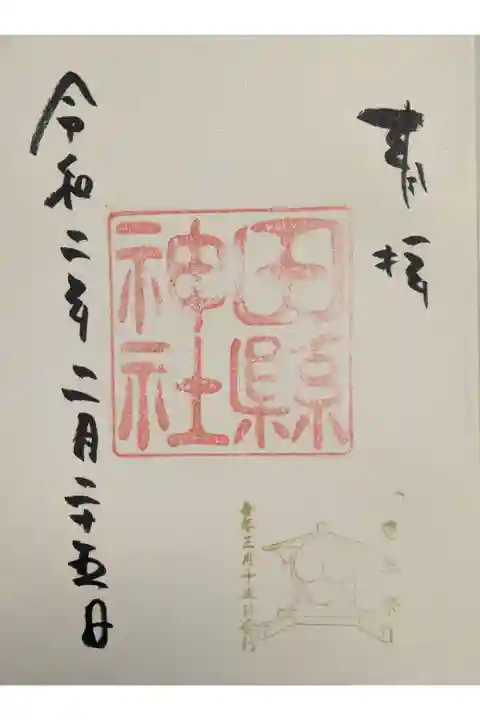 奉拝
田縣
神社
毎年三月十五日斎行
令和二年二月二十五日